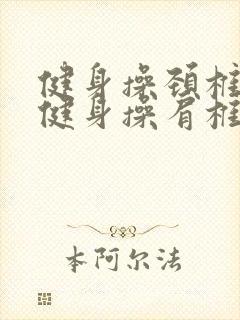 健身操颈椎
健身操肩椎
本阿尔法